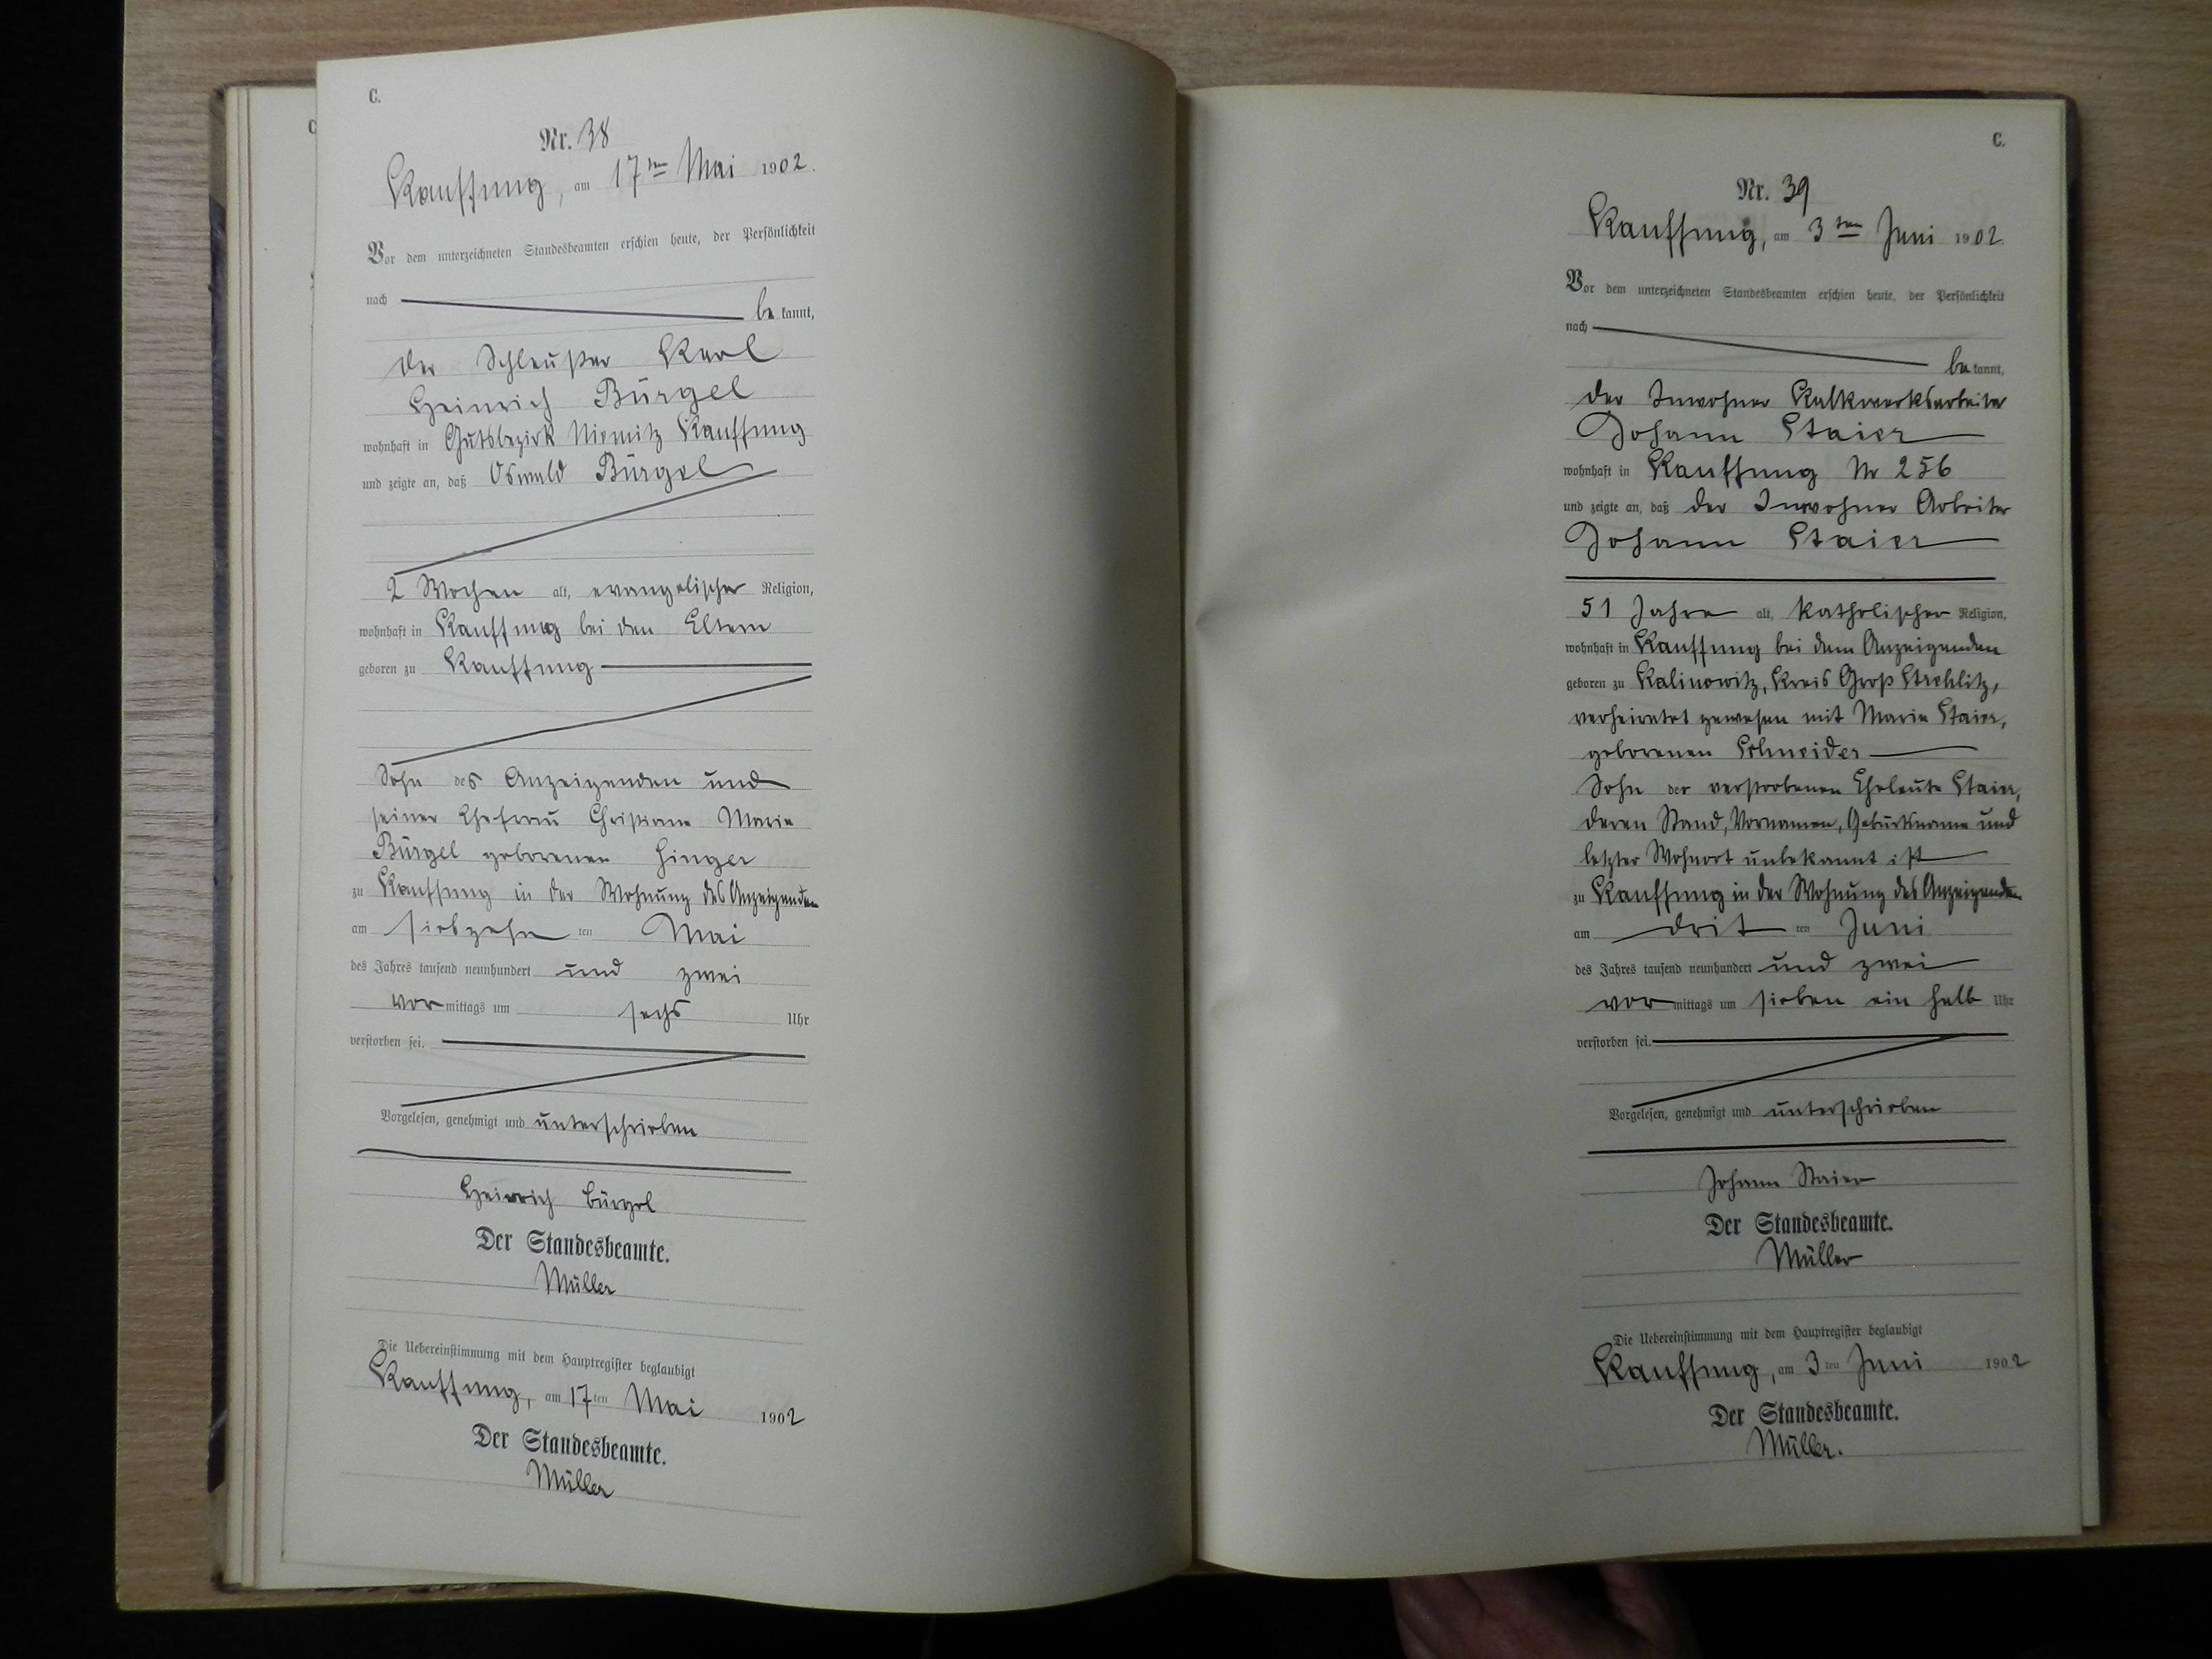 C.
Nr. 38
Kauffung, am 17ten Mai 1902.
Vor dem unterzeichneten Standesbeamten erschien heute, der Persönlichkeit
nach
be kannt,
der Schleußer Karl
Heinrich Bürgel
wohnhaft in Gutsbezirk Niemitz Kauffung
und zeigte an, daß Oswald Bürgel
2 Wochen alt, evangelischer Religion,
wohnhaft in Kauffung bei den Eltern
geboren zu Kauffung
Sohn des Anzeigenden und
seiner Ehefrau Christiane Marie
Bürgel geborenen Hinger
zu Kauffung in der Wohnung des Anzeigenden
am siebzehn ten Mai
des Jahres tausend neunhundert und zwei
vor mittags um sechs Uhr
verstorben sei.
Vorgelesen, genehmigt und unterschrieben
Heinrich Bürgel
Der Standesbeamte.
Müller
Die Uebereinstimmung mit dem Hauptregister beglaubigt
Kauffung, am 17ten Mai 1902
Der Standesbeamte.
Müller
C.
Nr. 39
Kauffung, am 3ten Juni 1902.
Vor dem unterzeichneten Standesbeamten erschien heute, der Persönlichkeit
nach
be kannt,
der Inwohner Kalkwerksarbeiter
Johann Staier
wohnhaft in Kauffung Nr 256
und zeigte an, daß der Inwohner Arbeiter
Johann Staier
51 Jahre alt, katholischer Religion,
wohnhaft in Kauffung bei dem Anzeigenden
geboren zu Kalinowitz, Kreis Groß Strehlitz,
verheiratet gewesen mit Marie Staier,
geborenen Schneider
Sohn der verstorbenen Eheleute Staier,
deren Stand, Vornamen, Geburtsname und
letzter Wohnort unbekannt ist
zu Kauffung in der Wohnung des Anzeigenden
am drit ten Juni
des Jahres tausend neunhundert und zwei
vor mittags um sieben ein halb Uhr
verstorben sei.
Vorgelesen, genehmigt und unterschrieben
Johann Staier
Der Standesbeamte.
Müller
Die Uebereinstimmung mit dem Hauptregister beglaubigt
Kauffung, am 3ten Juni 1902
Der Standesbeamte.
Müller.